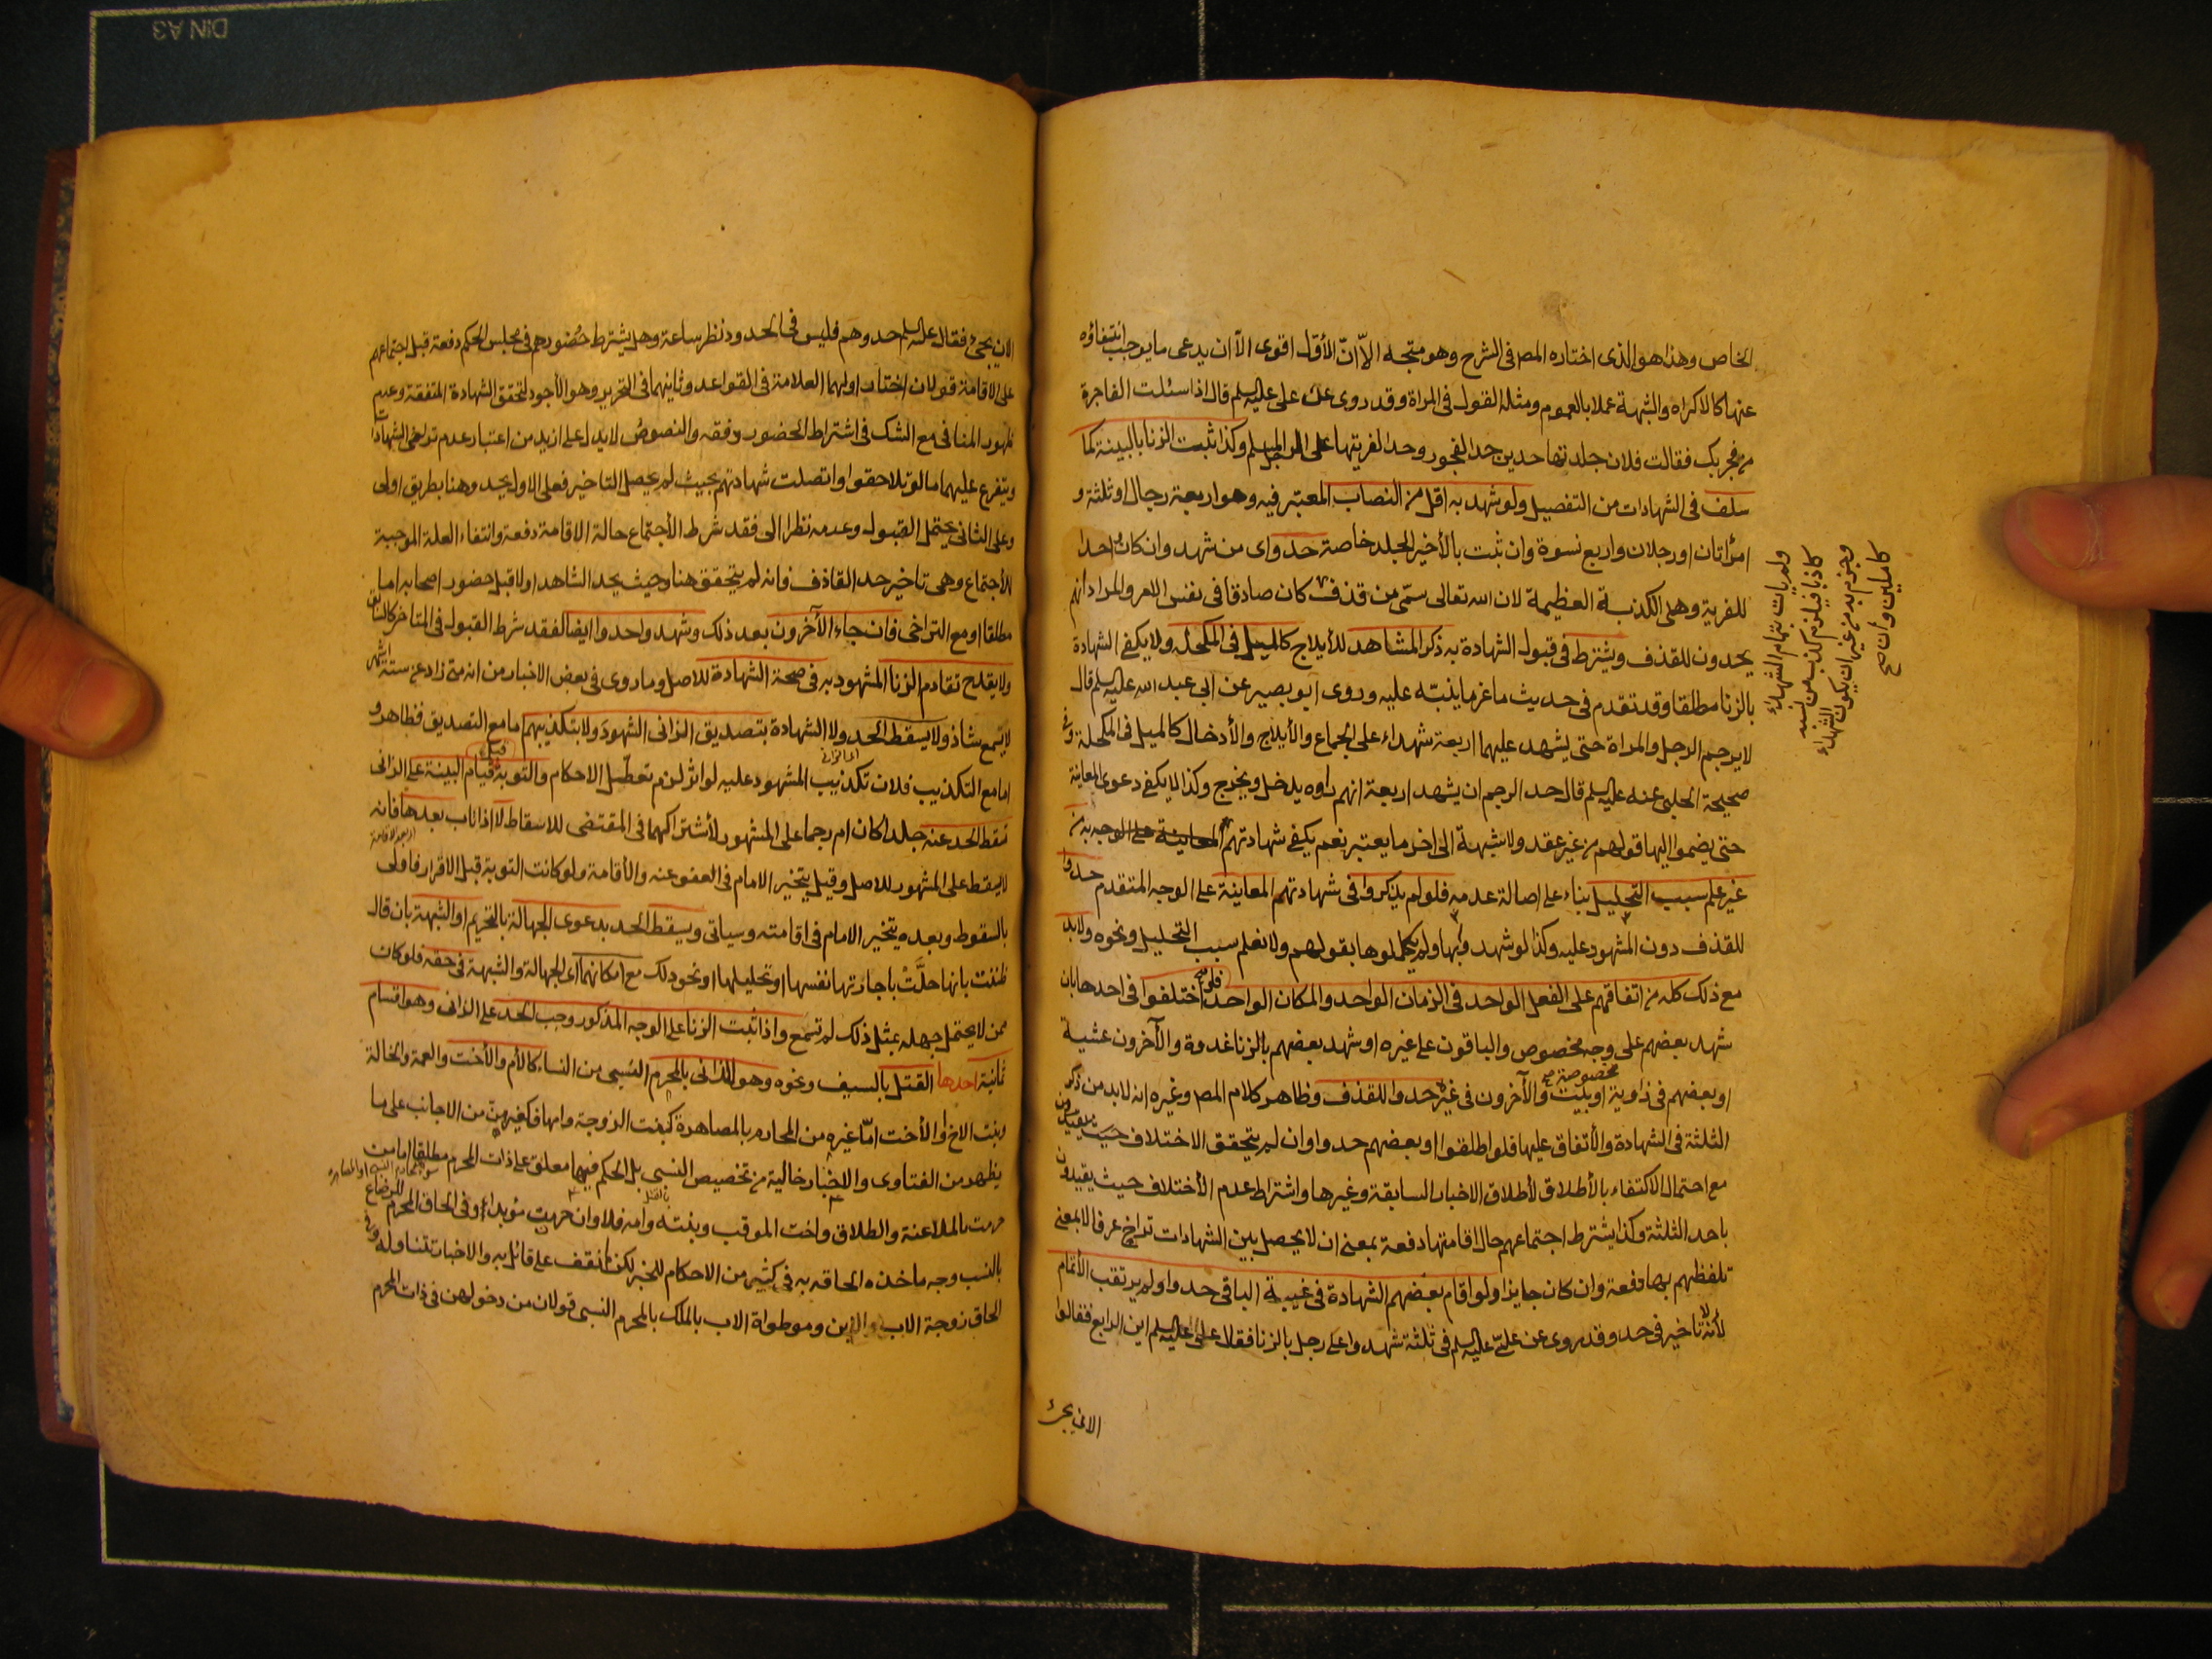 الخاص وهذا هو الذى اختاره المص فى الشرح وهو متجه الاّ انّ الأوّل اقوى الاّ ان يدعى ما يوجب انتفاؤه
عنها كالاكراه والشبهة عملا بالعموم ومثله القول فى المراة وقد روى عن على عليه السلم قال اذا سئلت الفاجرة
من فجر بك فقالت فلان جلدتها حدين حدا لفجور وحدا لفريتها على الرجل المسلم وكذا ثبت الزنا بالبينة كما
سلف فى الشهادات من التفصيل ولو شهد به اقل من النصاب المعتبر فيه وهو اربعة رجال او ثلثة و
امرأتان او رجلان واربع نسوة وان ثبت بالأخير الجلد خاصة حدوا اى من شهد وان كان واحدا
للفرية وهى الكذبة العظيمة لان الله تعالى سمّى من قذف كان صادقا فى نفس الامر والمراد انهم
يحدون للقذف ويشترط فى قبول الشهادة به ذكر المشاهد للأيلاج كالميل فى المكحله ولا يكفى الشهادة
بالزنا مطلقا وقد تقدم فى حديث ماعز ما ينبّه عليه وروى ابو بصير عن ابى عبد الله عليه السلم قال
لا يرجم الرجل والمراة حتى يشهد عليهما اربعة شهداء على الجماع والأيلاج والأدخال كالميل فى المكحلة وفى
صحيحة الحلبى عنه عليه السلم قال حد الرجم ان يشهد اربعة انهم راوه يدخل ويخرج وكذا لا يكفى دعوى المعاينة
حتى يضموا اليها قولهم من غير عقد ولا شبهة الى اخر ما يعتبر نعم يكفى شهادتهم المعاينة على الوجه به من
غير علم سبب التحليل بناء على اصالة عدمه فلو لم يذكروا فى شهادتهم المعاينة على الوجه المتقدم حدوا
للقذف دون المشهود عليه وكذا لو شهدوا بها ولم يكملوها بقولهم ولا نعلم سبب التحليل ونحوه ولا بد
مع ذلك كله من اتفاقهم على الفعل الواحد فى الزمان الواحد والمكان الواحد فلو اختلفوا فى احدها بان
شهد بعضهم على وجه مخصوص والباقون على غيره او شهد بعضهم بالزنا غدوة والآخرون عشية
او بعضهم فى زاوية او بيت مخصوصة والآخرون فى غيره حدوا للقذف وظاهر كلام المص وغيره انه لا بد من ذكر
الثلثة فى الشهادة والأتفاق عليها فلو اطلقوا او بعضهم حدوا وان لم يتحقق الاختلاف حيث يقيدون
مع احتمال الاكتفاء بالأطلاق لأطلاق الاخبار السابقة وغيرها واشتراط عدم الأختلاف حيث يقيدون
باحد الثلثة وكذا يشترط اجتماعهم حال اقامتها دفعة بمعنى ان لا يحصل بين الشهادات تراخ عرفا لا بمعنى
تلفظهم بها دفعة وان كان جايزا ولو اقام بعضهم الشهادة فى غيبة الباقى حدوا ولم يرتقب الأتمام
لأنه لا تاخير فى حد وقد روى عن علىّ عليه السلم فى ثلثة شهدوا على رجل بالزنا فقال على عليه السلم اين الرابع فقالوا
الان يجئ
ولم يات بتمام الشهداء
كاذبا فيلزم كذب من نسبه
وجزم به من غير ان يكون الشهداء
كاملين وان صح
الان يجئ فقال عليه السلم حدوهم فليس فى الحدود نظر ساعة وهل يشترط حضورهم فى مجلس الحكم دفعة قبل اجتماعهم
على الاقامة قولان اختار اولهما العلامة فى القواعد وثانيهما فى التحرير وهو الأجود لتحقق الشهادة المتفقة وعدم
ظهور المنافى مع الشك فى اشتراط الحضور دفعة والنصوص لا يدل على ازيد من اعتبار عدم تراخى الشهادات
ويتفرع عليهما ما لو تلاحقوا واتصلت شهادتهم بحيث لم يحصل التاخير فعلى الاول يحد وهنا بطريق اولى
وعلى الثانى يحتمل القبول وعدمه نظرا الى فقد شرط الأجتماع حالة الاقامة دفعة وانتفاء العلة الموجبة
للأجتماع وهى تاخير حد القاذف فانه لم يتحقق هنا وحيث يحد الشاهد اولا قبل حضور اصحابه اما
مطلقا او مع التراخى فان جاء الآخرون بعد ذلك وشهدوا حدوا ايضا لفقد شرط القبول فى المتاخر كالسابق
ولا يقدح تقادم الزنا المشهود به فى صحة الشهادة للاصل وما روى فى بعض الاخبار من انه متى زاد عن ستة اشهر
لا يسمع شاذ ولا يسقط الحد ولا الشهادة بتصديق الزانى الشهود ولا بتكذيبهم اما مع التصديق فظاهر و
اما مع التكذيب فلان تكذيب المشهود عليه لو اثر لزم تعطيل الاحكام والتوبة قبل قيام البينة على الزانى
تسقط الحد عنه جلدا كان ام رجما على المشهور لأشتراكهما فى المقتضى للاسقاط لا اذا تاب بعدها فانه
لا يسقط على المشهور للاصل وقيل يتخير الامام فى العفو عنه والأقامة ولو كانت التوبة قبل الاقرار فاولى
بالسقوط وبعده يتخير الامام فى اقامته وسياتى ويسقط الحد بدعوى الجهالة بالتحريم او الشبهة بان قال
ظننت بانها حلّت باجارتها نفسها او تحليلها او نحو ذلك مع امكانهما اى الجهالة والشبهة فى حقه فلو كان
ممن لا يحتمل جهله بمثل ذلك لم تسمع واذا ثبت الزنا على الوجه المذكور وجب الحد على الزانى وهو اقسام
ثمانية احدها القتل بالسيف ونحوه وهو للزانى بالمحرم النسبى من النساء كالأم والأخت والعمة والخالة
وبنت الاخ والأخت امّا غيره من المحارم بالمصاهرة كبنت الزوجة وامها فكغيرهن من الاجانب على ما
يظهر من الفتاوى والاخبار خالية من تخصيص النسبى بل الحكم فيها معلق على ذات المحرم مطلقا اما من
حرمت بالملاعنة والطلاق واخت الموقب وبنته وامه فلا وان حرمت مؤبدا وفى الحاق المحرم للرضاع
بالنسب وجه ماخذه الحاقه به فى كثير من الاحكام للخبر لكن لم نقف على قائل به والاخبار تتناوله وفى
الحاق زوجة الاب والابن وموطواة الاب بالملك بالمحرم النسبى قولان من دخولهن فى ذات المحرم